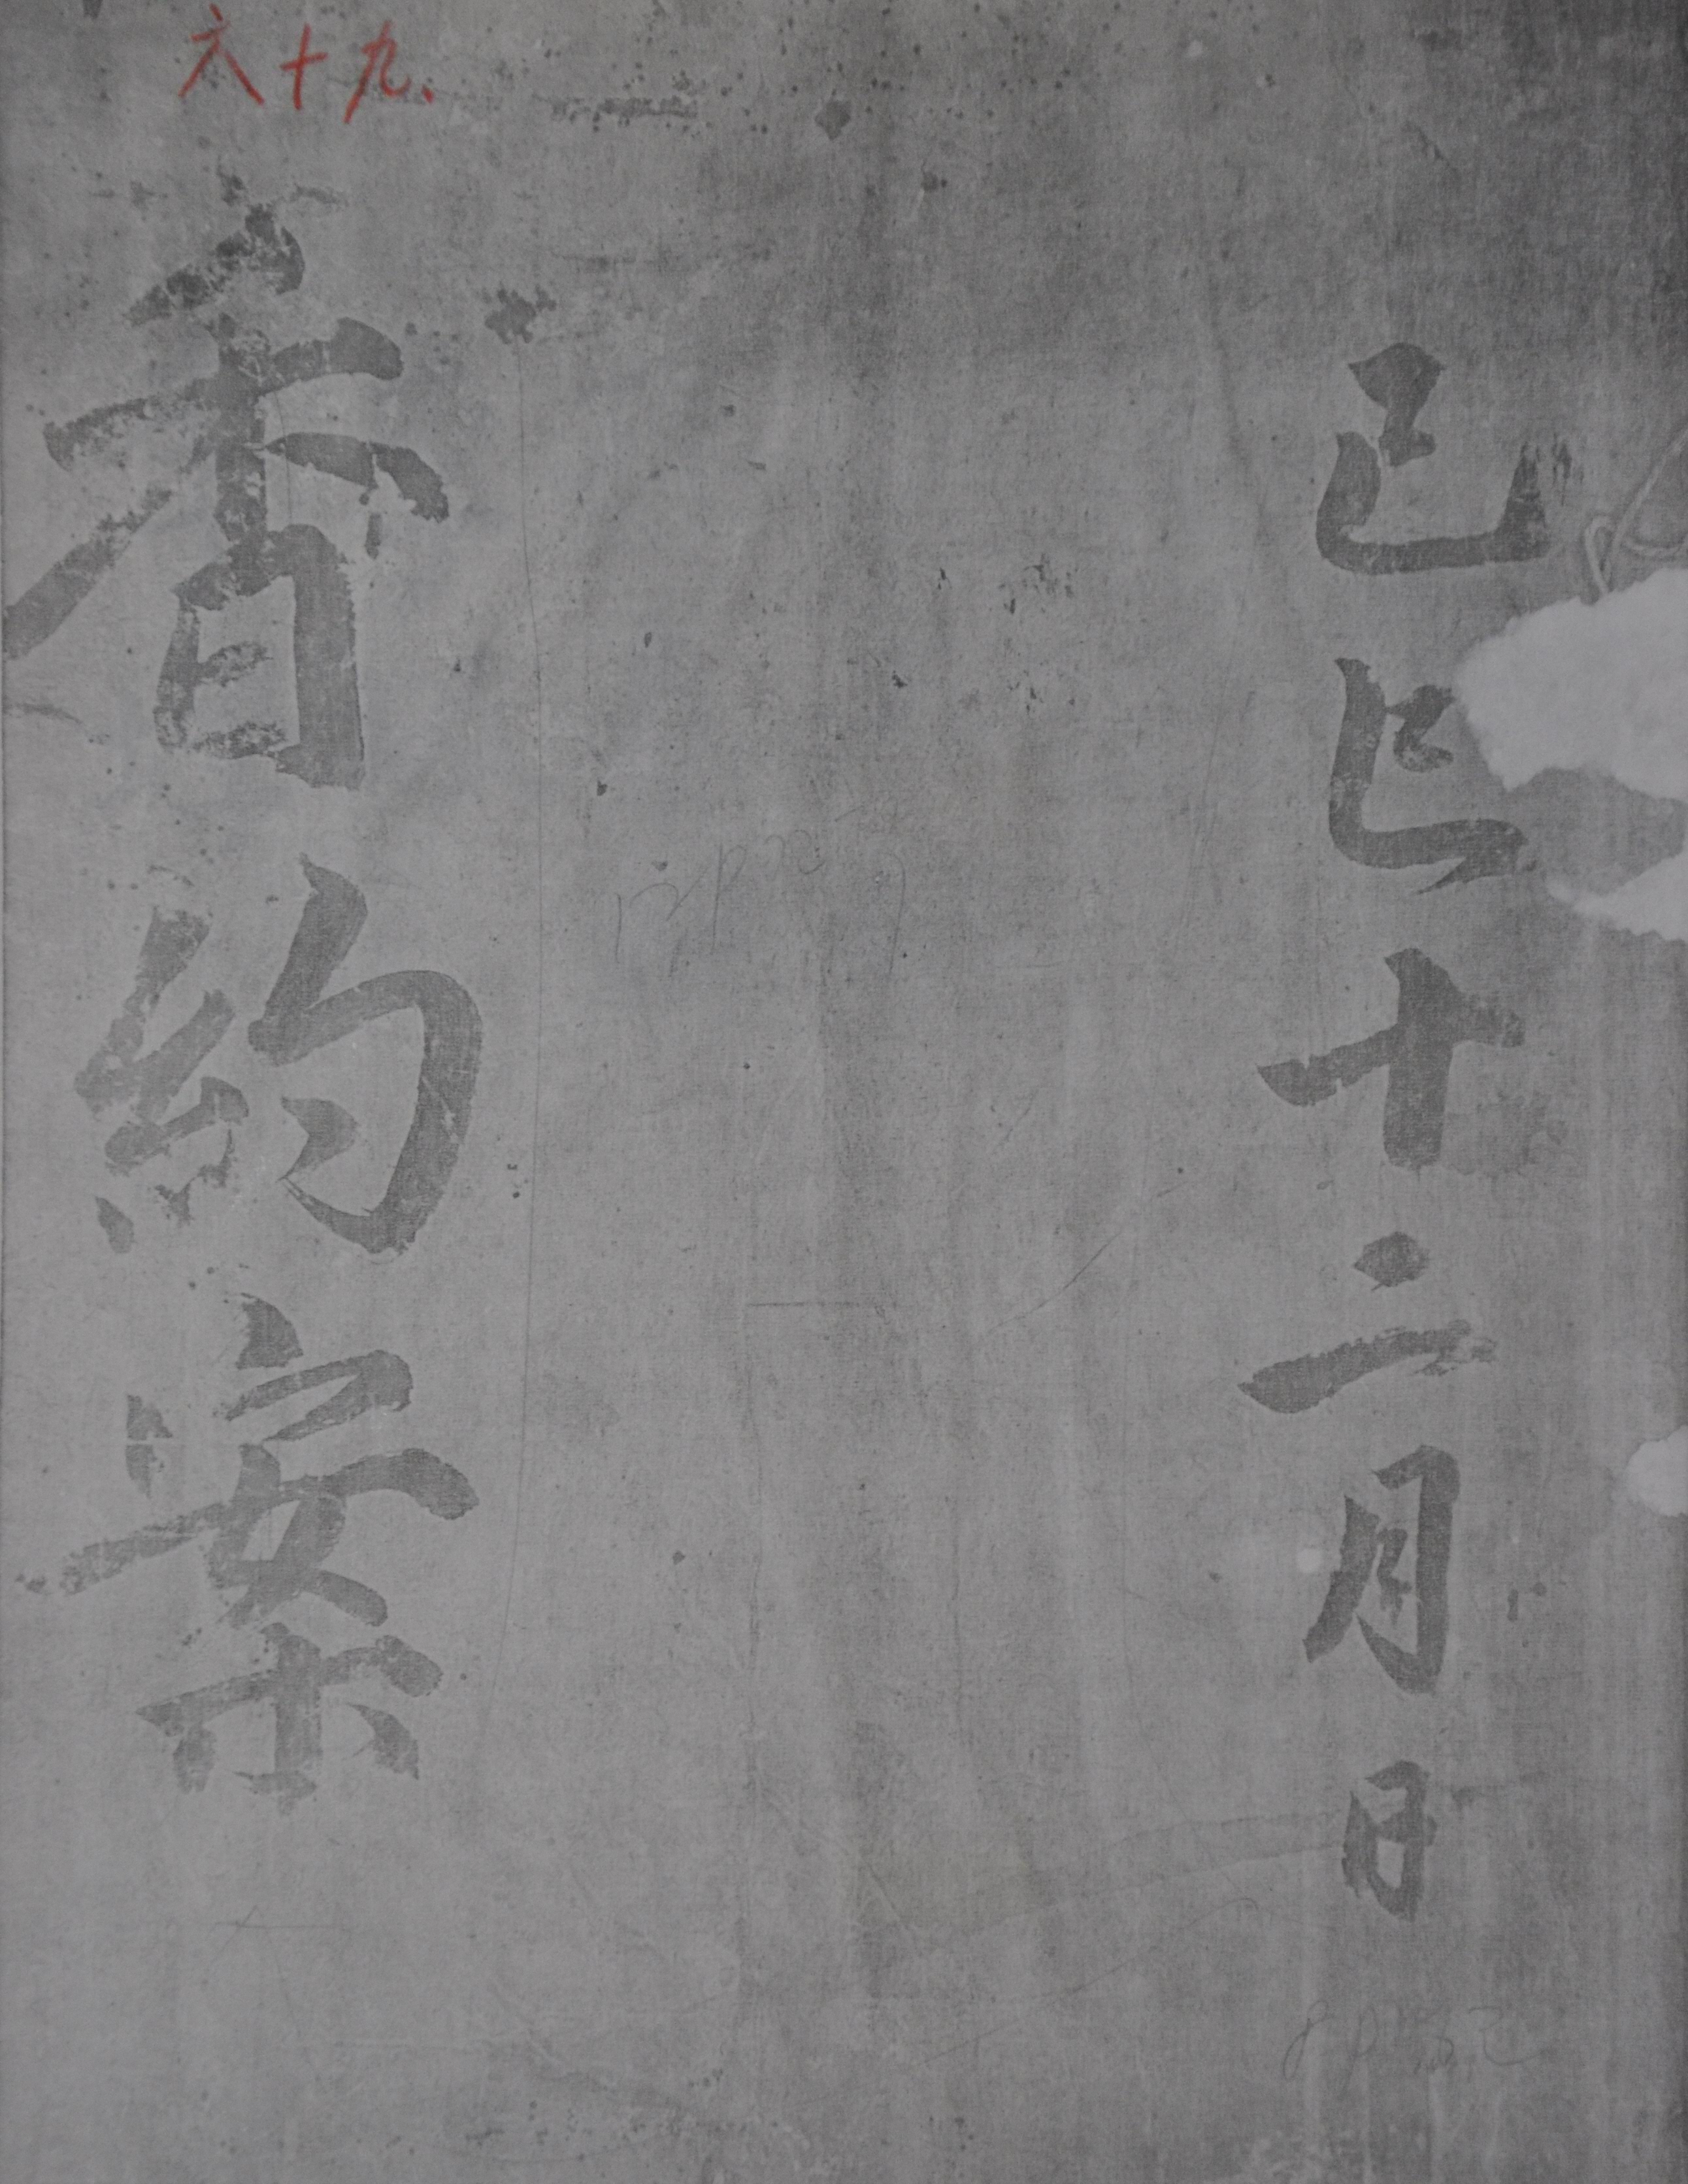 六十九.
己巳十二月 日
香約案